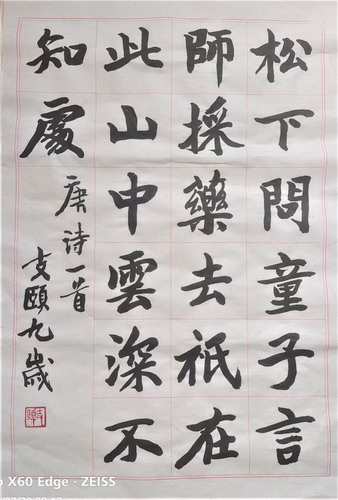 松下問童子言
師採藥去祇在
此山中雲深不
知處
唐詩一首
支頤九歲
X60 Edge · ZEISS